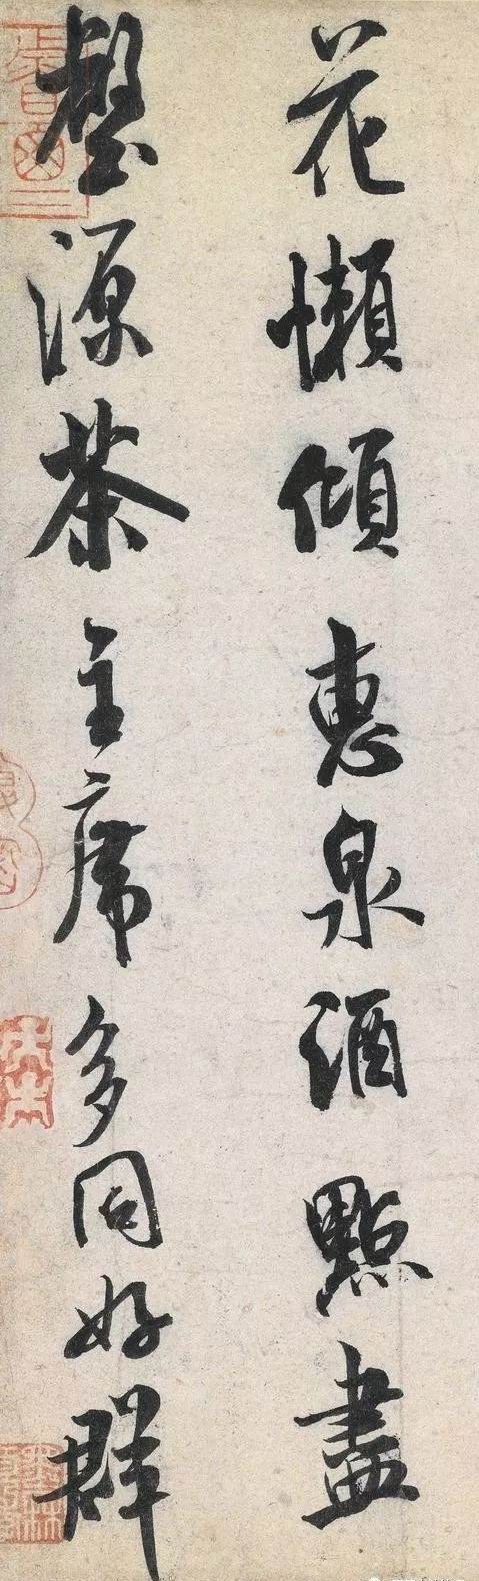 花懶傾惠泉酒點盡
壑源茶主席多同好群